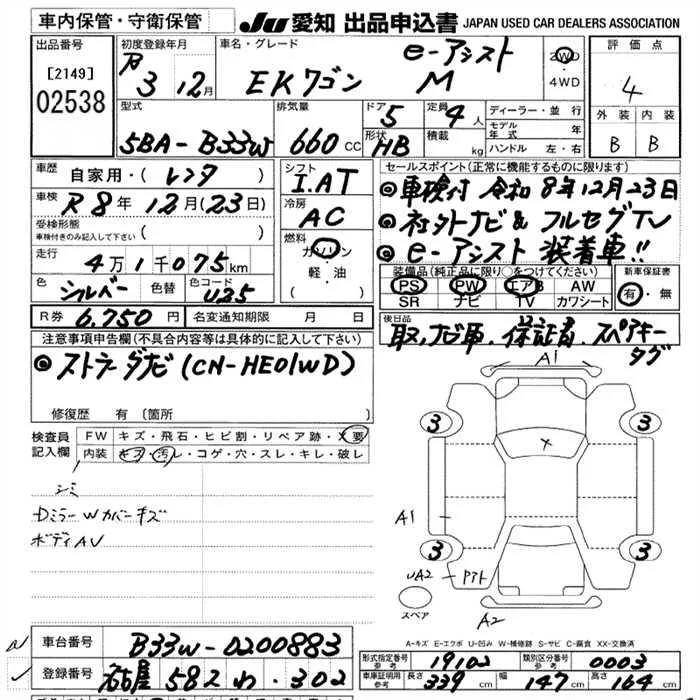 車内保管・守衛保管
JU 愛知 出品申込書 JAPAN USED CAR DEALERS ASSOCIATION
出品番号
[2149]
02538
初度登録年月
R 3 12月
車名・グレード
e-アシスト
EKワゴン M
2WD
・
4WD
評価点
4
外装 内装
B B
型式
5BA-B33W
排気量
660cc
ドア 5
形状 HB
定員 4人
積載 kg
ディーラー・並行
モデル年式 年
ハンドル 左・右
車歴
自家用・(レンタ)
車検
R8年12月(23日)
受検形態
車検付きのみ記入して下さい ( )
走行
4万1千075km
色 シルバー 色替 色コード U25
シフト
I.AT
冷房
AC
燃料
ガソリン
・
軽・油
セールスポイント(正常に機能するものに限ります)
◎車検付 令和8年12月23日
◎社外ナビ& フルセグTV
◎e-アシスト 装着車!!
装備品(純正品に限り○をつけてください)
PS PW エアB AW
SR ナビ TV カワシート
新車保証書
有・無
R券 6,750円 名変通知期限 月 日
後日品
取,ナビ取.保証書.スペアキー
タグ
注意事項申告欄(不具合内容等は具体的に記入して下さい)
◎ストラーダナビ(CN-HE01WD)
修復歴 有(箇所 )
検査員
記入欄
FW キズ・飛石・ヒビ割・リペア跡・X要
内装 キズ・汚レ・コゲ・穴・スレ・キレ・破レ
シミ
DミラーWカバーキズ
ボディAU
A1
3 3
X
A1
3 3
UA2
スペア
A2
A-キズ E-エクボ U-凹み W-補修跡 S-サビ C-腐食 XX-交換済
車台番号 B33W-0200883
登録番号 名古屋 582 わ・302
形式指定番号
参考
19102
類別区分番号
参考
0003
車庫証明用
参考
長さ 339cm 幅 147cm 高さ 164cm